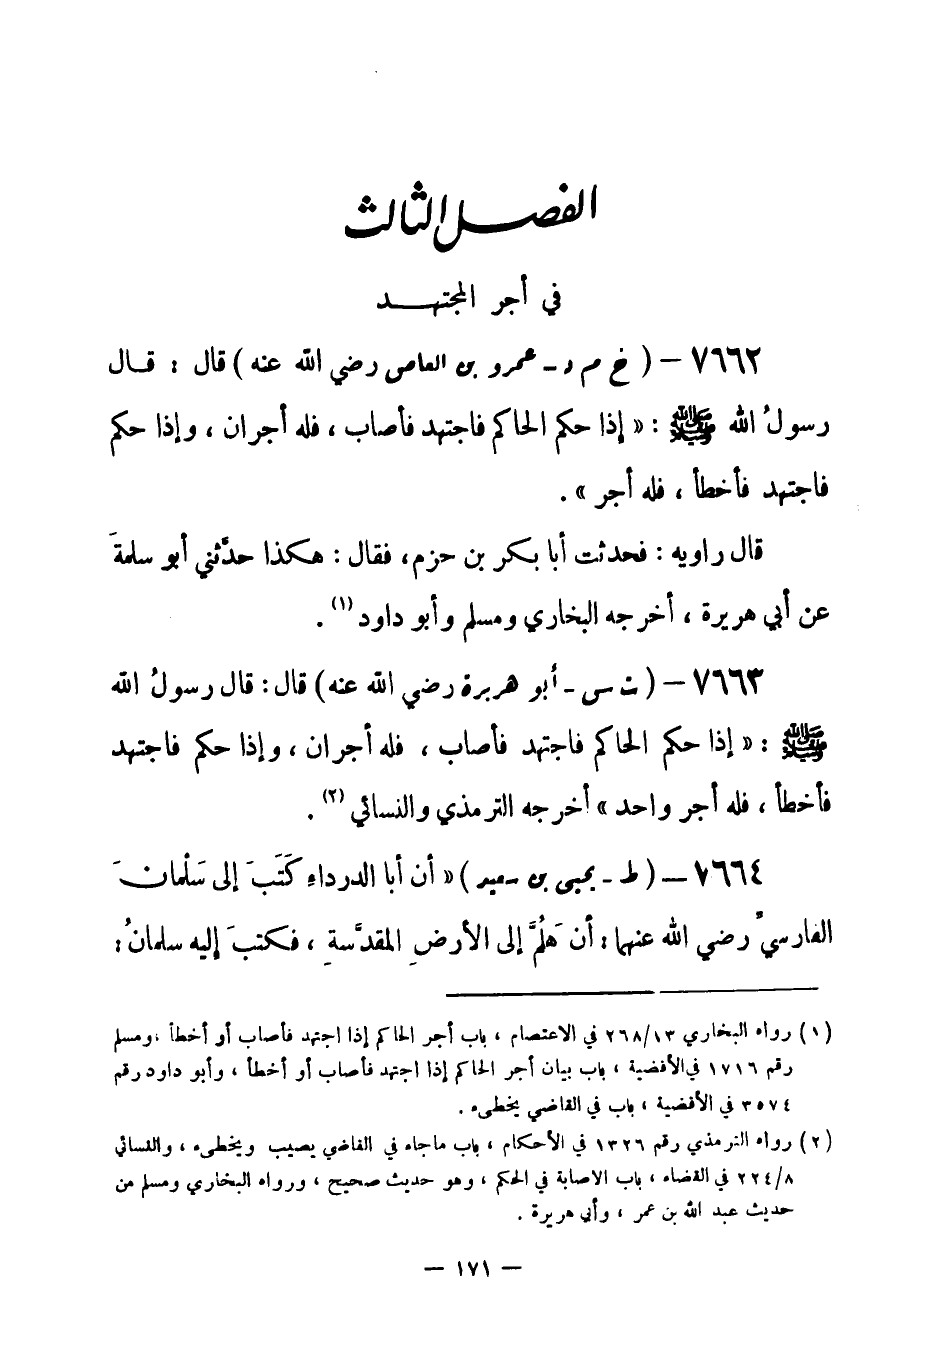 الفصل الثالث
في أجر المجتهد
٧٦٦٢ – ( خ م د - عمرو بن العاص رضي الله عنه ) قال : قال
رسولُ الله ﷺ : « إذا حكم الحاكم فاجتهد فأصاب ، فله أجران ، وإذا حكم
فاجتهد فأخطأ ، فله أجر » .
قال راويه : فحدثت أبا بكر بن حزم، فقال : هكذا حدَّثني أبو سلمةَ
عن أبي هريرة ، أخرجه البخاري ومسلم وأبو داود (١) .
٧٦٦٣ – ( ت س - أبو هريرة رضي الله عنه ) قال : قال رسولُ الله
ﷺ : « إذا حكم الحاكم فاجتهد فأصاب ، فله أجران ، وإذا حكم فاجتهد
فأخطأ ، فله أجر واحد » أخرجه الترمذي والنسائي (٢) .
٧٦٦٤ – ( ط - يحيى بن سعيد ) « أن أبا الدرداءِ كَتَبَ إلى سَلْمانَ
الفارسيِّ رضي الله عنهما : أن هَلُمَّ إلى الأرضِ المقدَّسةِ ، فكتبَ إليه سلمانُ :
(١) رواه البخاري ٢٦٨/١٣ في الاعتصام ، باب أجر الحاكم إذا اجتهد فأصاب أو أخطأ ، ومسلم
رقم ١٧١٦ في الأقضية ، باب بيان أجر الحاكم إذا اجتهد فأصاب أو أخطأ ، وأبو داود رقم
٣٥٧٤ في الأقضية ، باب في القاضي يخطىء .
(٢) رواه الترمذي رقم ١٣٢٦ في الأحكام ، باب ماجاء في القاضي يصيب ويخطىء ، والنسائي
٢٢٤/٨ في القضاء ، باب الاصابة في الحكم ، وهو حديث صحيح ، ورواه البخاري ومسلم من
حديث عبد الله بن عمر ، وأبي هريرة .
– ١٧١ –